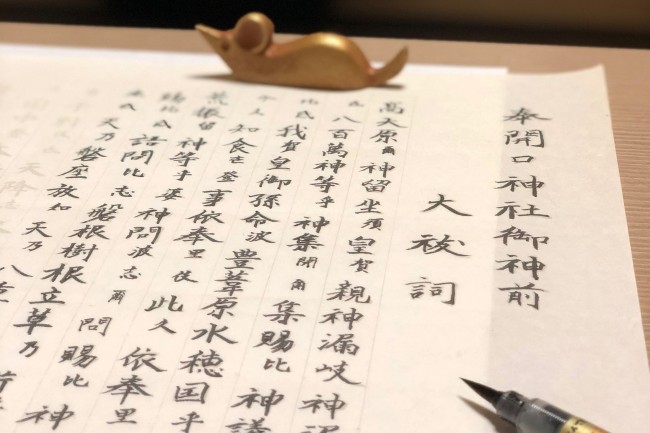 奉開口神社御神前
大祓詞
高天原爾神留坐須皇賀親神漏岐神
氐八百萬神等乎神集閇爾集賜比神議
比氐我賀皇御孫命波豊葦原水穂国乎
久知食志登事依奉里伎此久依奉里
荒振留神等乎婆神問波志爾問賜比神
賜比氐語問比志磐根樹根立草乃
氐天乃磐座放知天乃八重